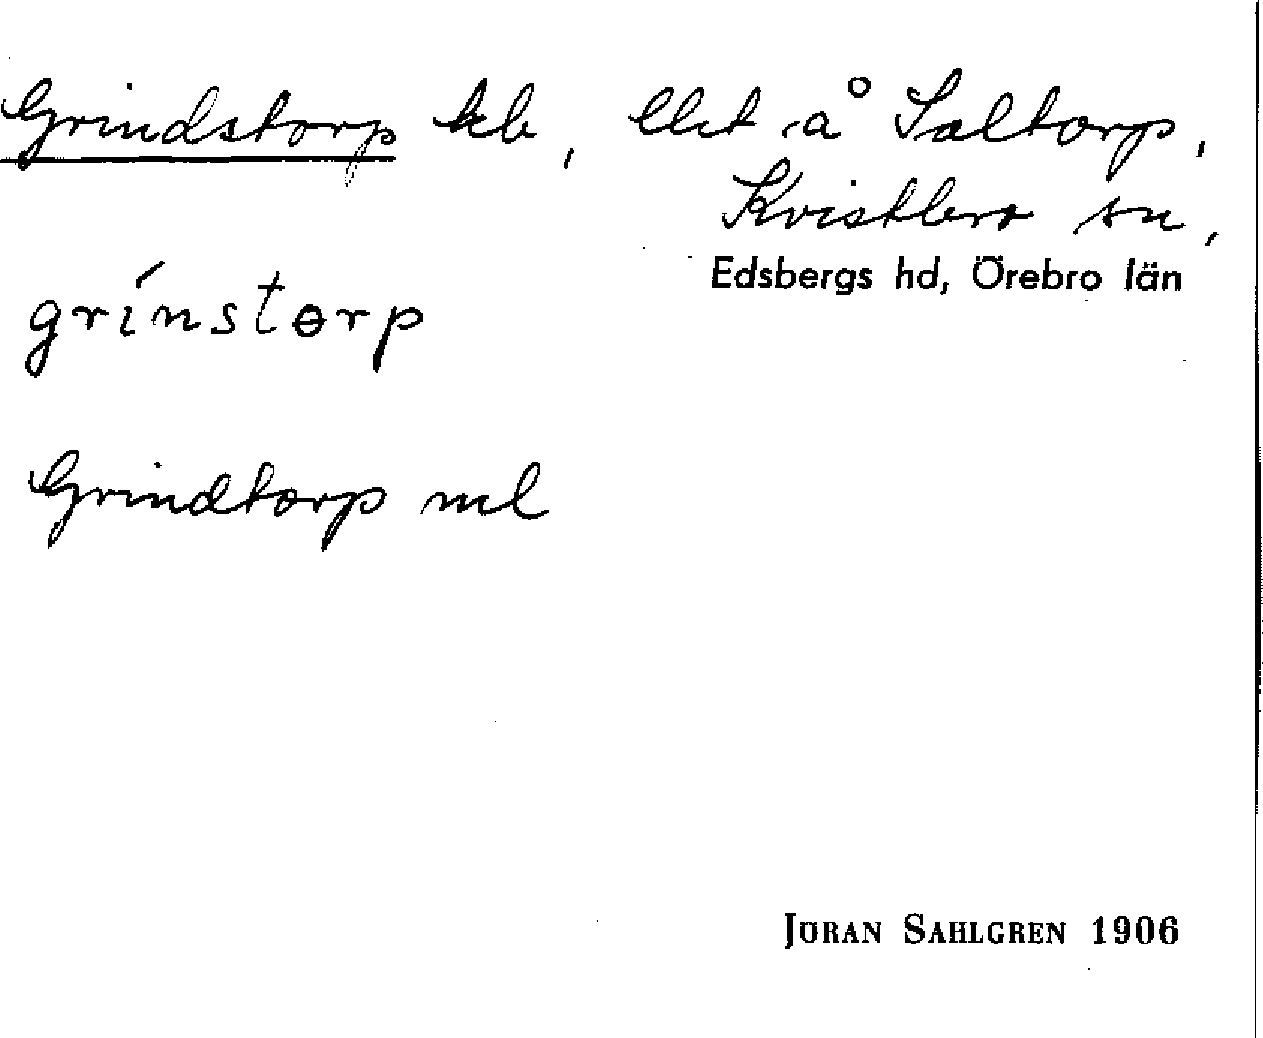 Grindstorp kb, lht å Saltorp,
Kvistbro sn,
Edsbergs hd, Örebro län
grínstɵrp
Grindtorp ml
JÖRAN SAHLGREN 1906